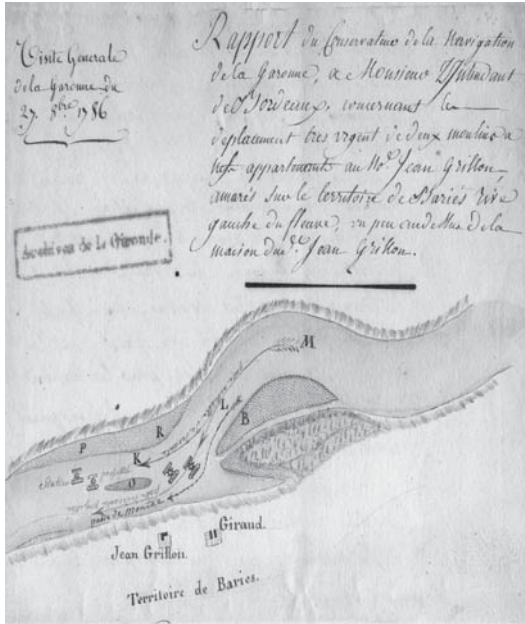 Visite Generale
de la Garonne du
27. 8bre 1786
Rapport du Conservateur de la Navigation
de la Garonne, a Monsieur L'Intendant
de Bordeaux, concernant le
deplacement tres urgent de deux moulins a
nef appartenants au Sr. Jean Grillon,
amarés sur le territoire de Bariés rive
gauche du fleuve, un peu au dessus de la
maison dud. Jean Grillon.
Archives de la Gironde
M
L
R
B
P
K
Station
O
passe de montée
Giraud.
Jean Grillon.
Territoire de Baries.